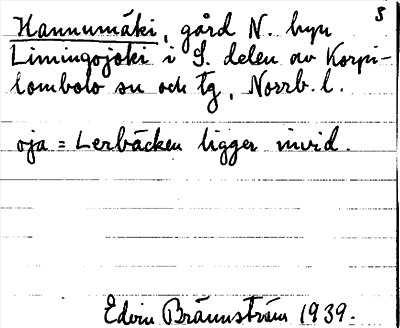 3
Hannumäki, gård N. byn
Limingojoki i S. delen av Korpi-
lombolo sn och tg, Norrb. l.
oja = Lerbäcken ligger invid.
Edvin Brännström 1939.